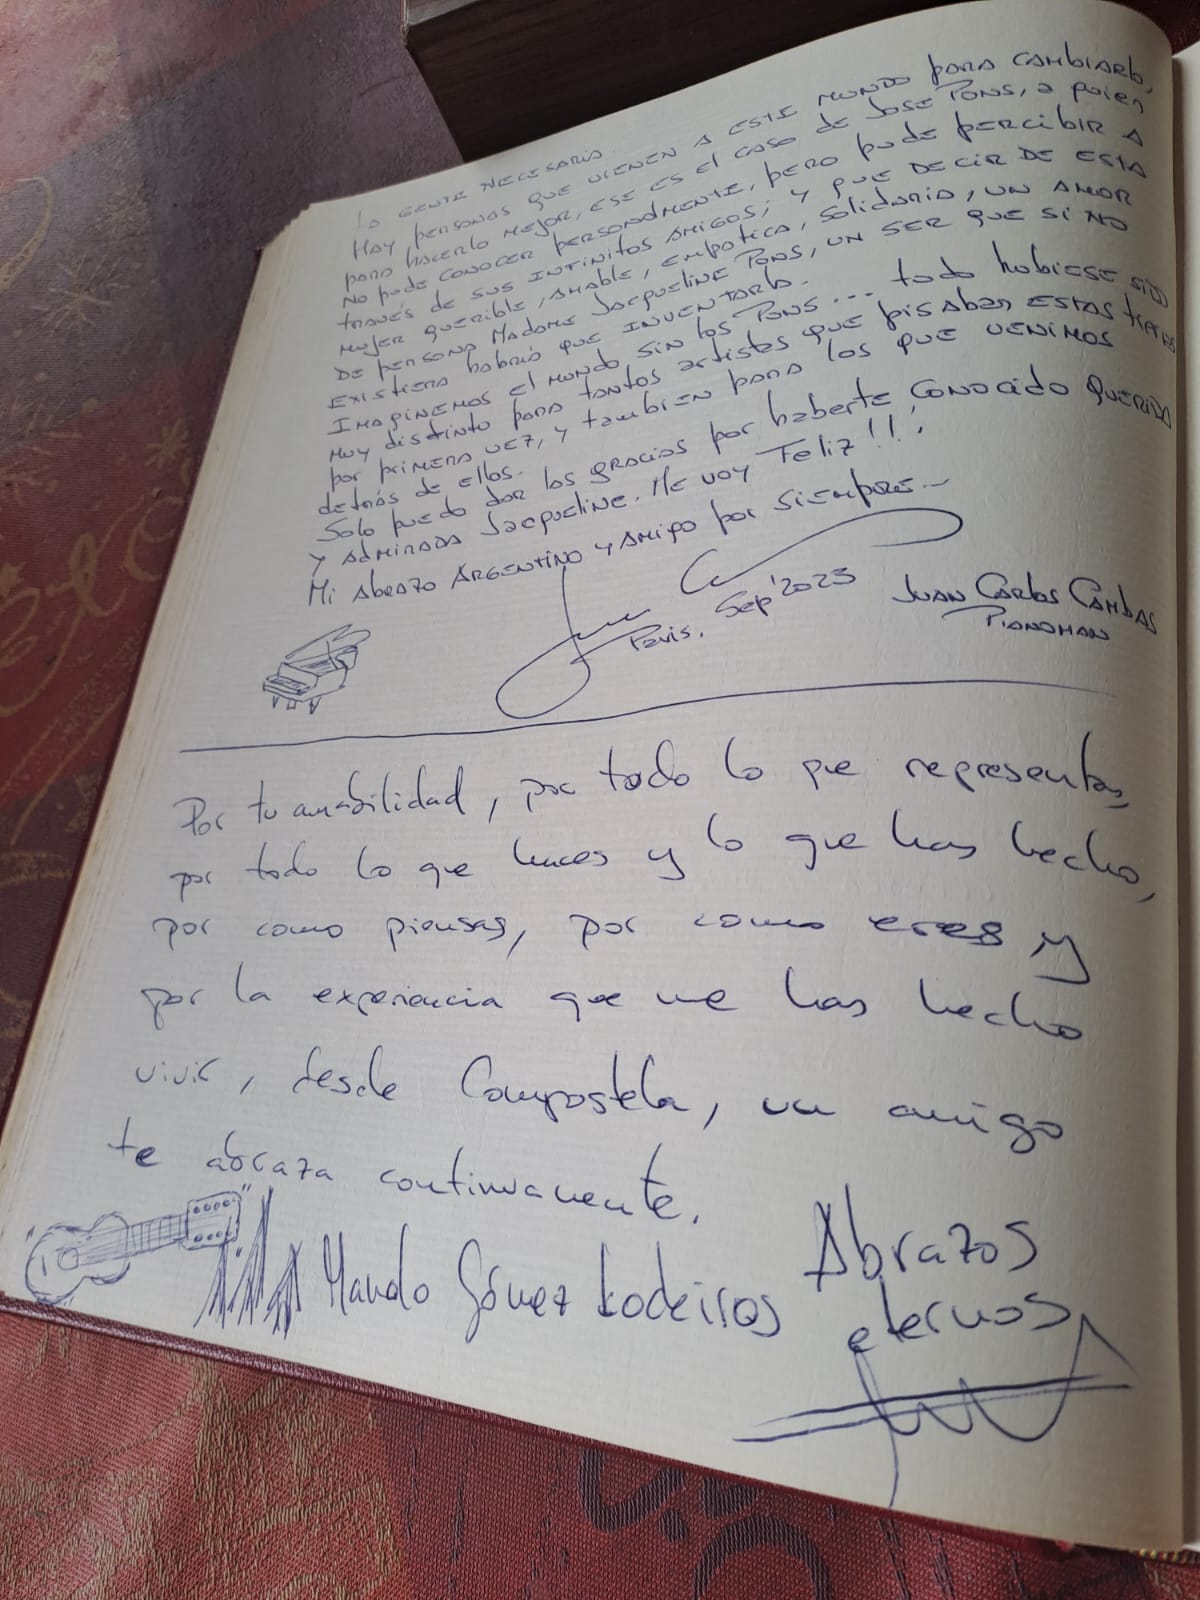 La gente necesaria.
Hay personas que vienen a este mundo para cambiarlo,
para hacerlo mejor, ese es el caso de José Pons, a quien
no pude conocer personalmente, pero pude percibir a
través de sus infinitos amigos; y que decir de esta
mujer querible, amable, empática, solidaria, un amor
de persona Madame Jacqueline Pons, un ser que si no
existiera habría que inventarla.
Imaginemos el mundo sin los Pons... todo hubiese sido
muy distinto para tantos artistas que pisaban estas tierras
por primera vez, y también para los que venimos
detrás de ellos.
Solo puedo dar las gracias por haberte conocido querida
y admirada Jacqueline. Me voy Feliz!!!
Mi abrazo Argentino y amigo por siempre...
Paris, Sep'2023
Juan Carlos Cambas
Pianoman
Por tu amabilidad, por todo lo que representas,
por todo lo que haces y lo que has hecho,
por como piensas, por como eres y
por la experiencia que me has hecho
vivir, desde Compostela, un amigo
te abraza continuamente.
Abrazos
eternos
Manolo Gómez Lodeiros